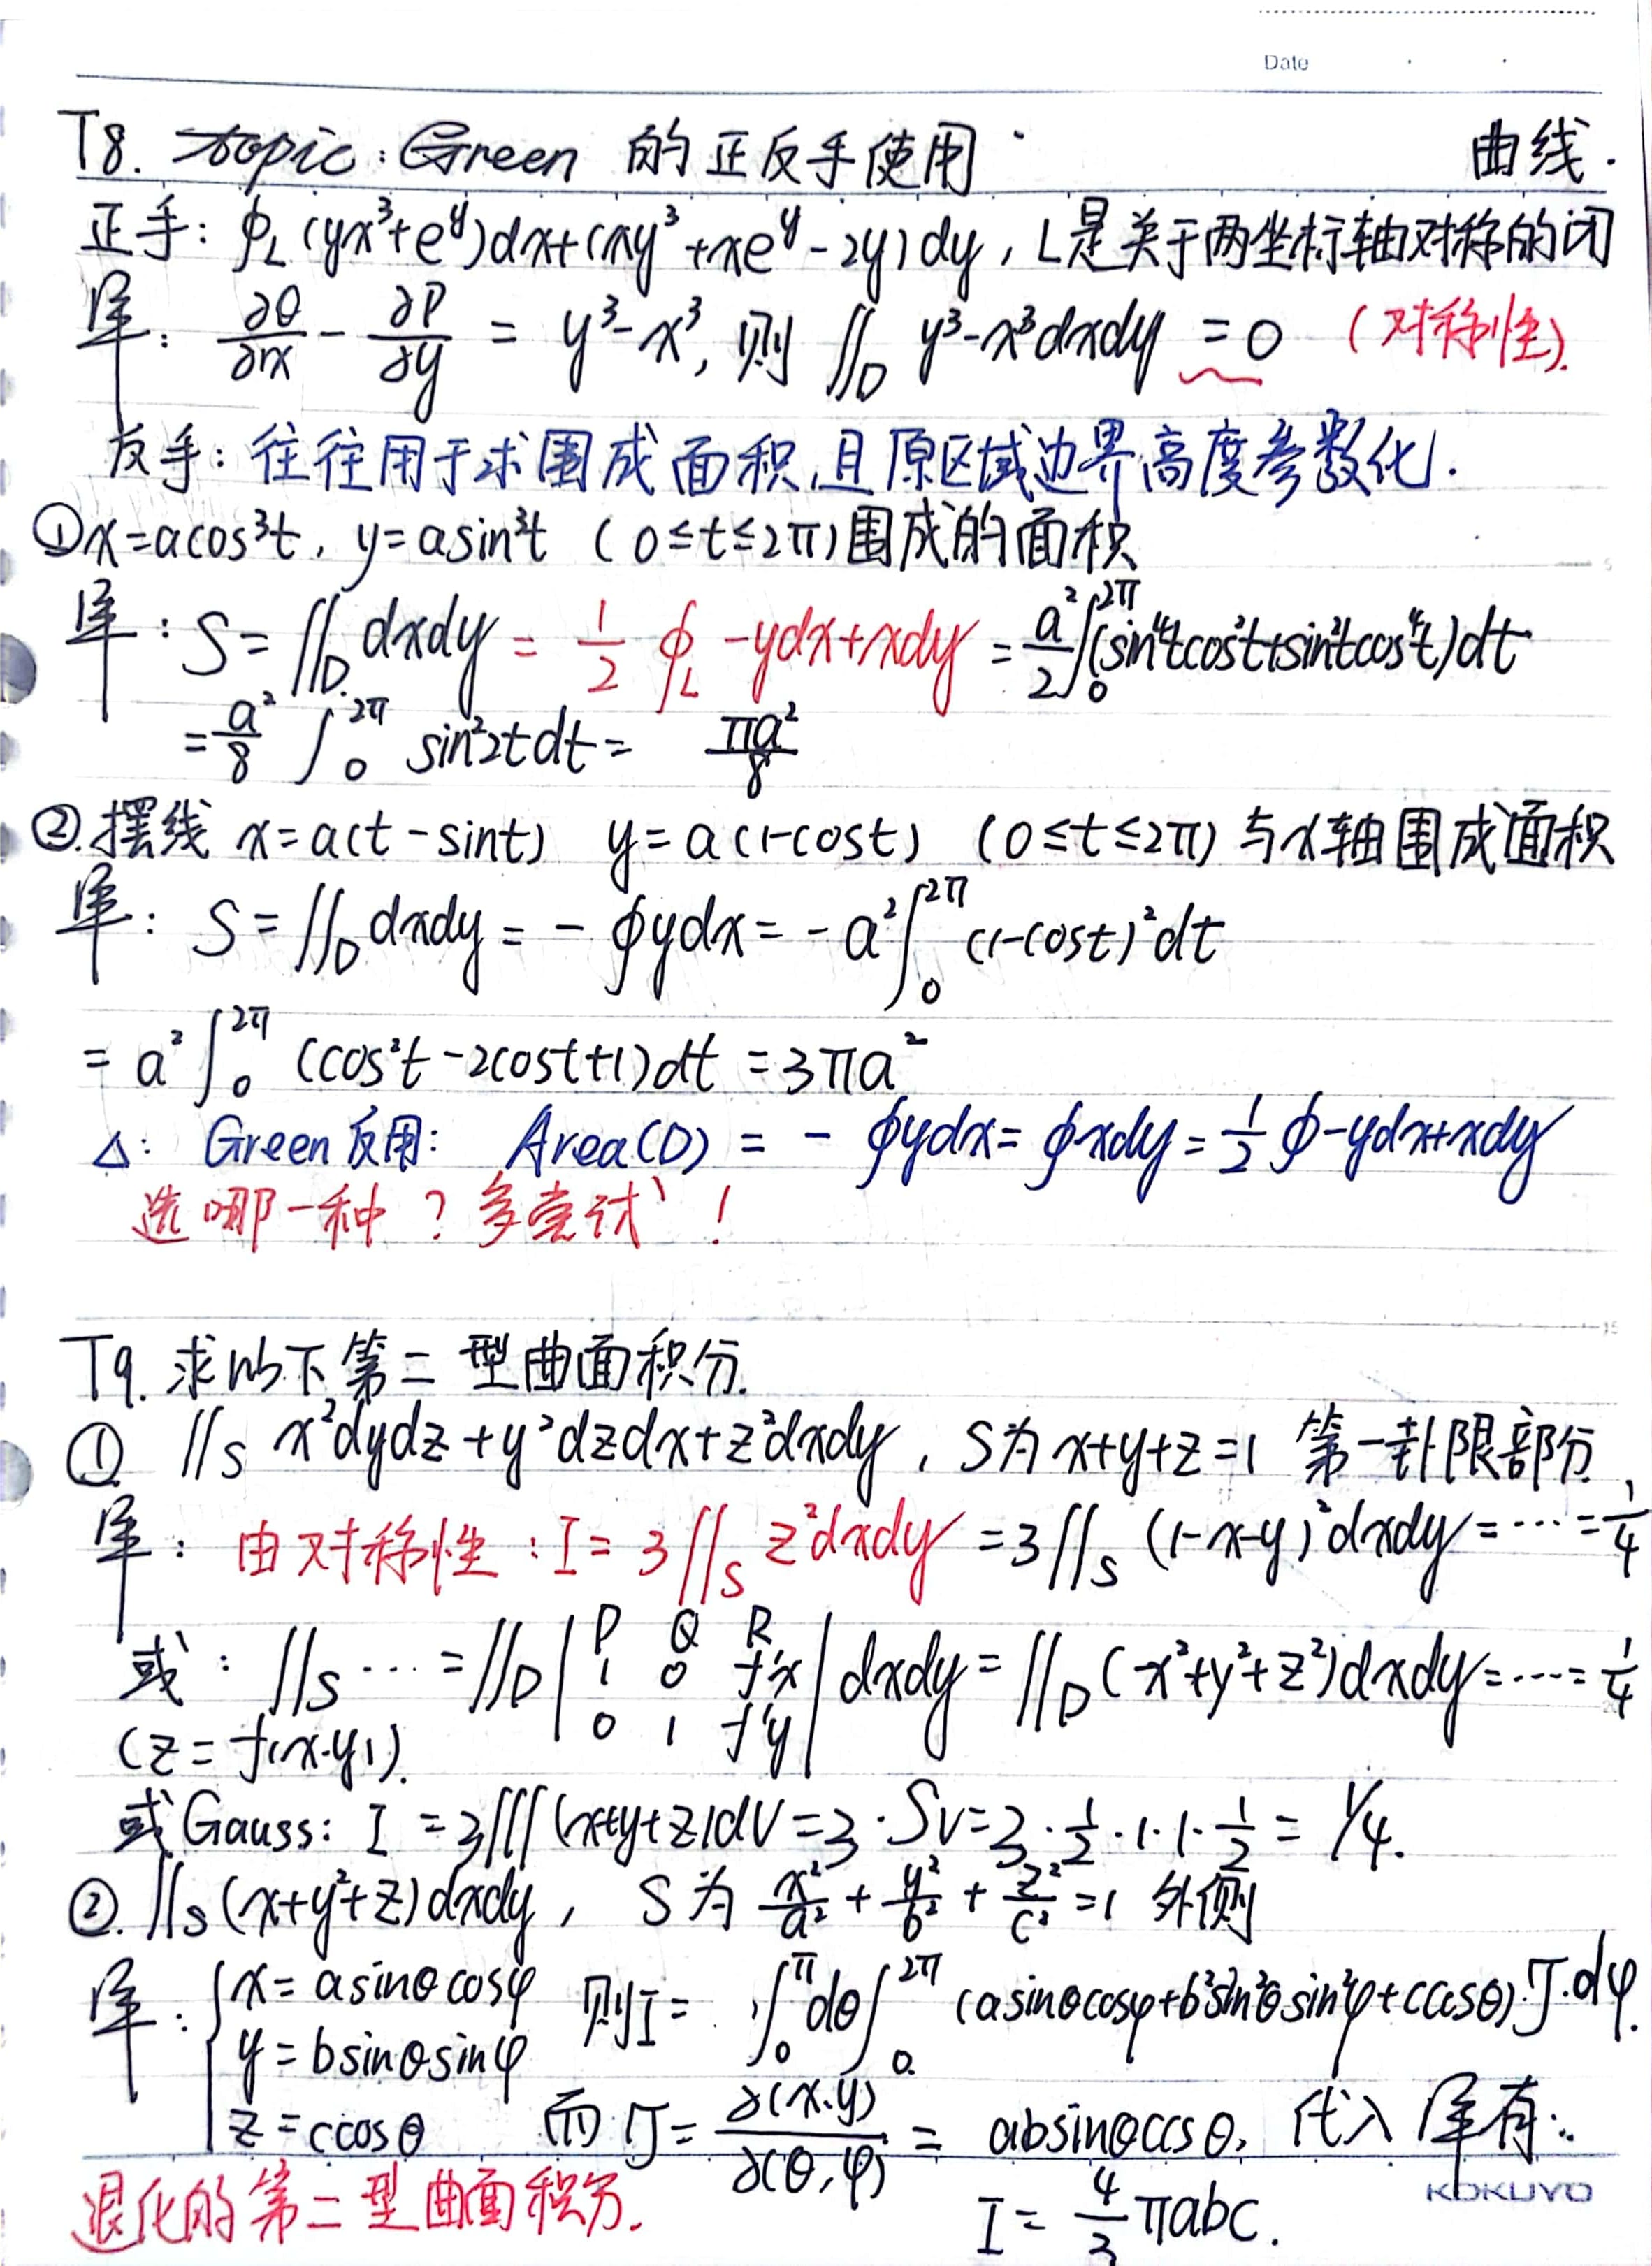 Date
T8. topic: Green 的正反手使用 曲线.
正手: ∮_L (yx³+e^y)dx+(xy³+xe^y-2y)dy, L是关于两坐标轴对称的闭
解: ∂Q/∂x - ∂P/∂y = y³-x³, 则 ∬_D y³-x³dxdy = 0 (对称性).
反手: 往往用于求围成面积,且原区域边界高度参数化.
①x=acos³t, y=asin³t (0≤t≤2π)围成的面积
解: S=∬_D dxdy = 1/2 ∮_L -ydx+xdy = a²/2 ∫_0^{2π}(sin⁴tcos²t+sin²tcos⁴t)dt
= a²/8 ∫_0^{2π} sin²2tdt = πa²/8
②.摆线 x=a(t-sint) y=a(1-cost) (0≤t≤2π) 与x轴围成面积
解: S=∬_D dxdy = -∮ydx = -a²∫_0^{2π} (1-cost)²dt
= a²∫_0^{2π} (cos²t-2cost+1)dt = 3πa²
△: Green反用: Area(D) = -∮ydx = ∮xdy = 1/2 ∮-ydx+xdy
选哪一种? 多尝试!
T9. 求以下第二型曲面积分.
① ∬_S x²dydz+y²dzdx+z²dxdy, S为x+y+z=1 第一卦限部分,
解: 由对称性: I=3∬_S z²dxdy = 3∬_S (1-x-y)²dxdy = ⋯ = 1/4
或: ∬_S ⋯ = ∬_D |P Q R; 1 0 f'x; 0 1 f'y| dxdy = ∬_D (-x²+y²+z²)dxdy = ⋯ = 1/4
(z=f(x.y)).
或Gauss: I = 3∭(x+y+z)dV = 3·Sv = 3·1/2·1·1·1/2 = 1/4.
②. ∬_S (x+y²+z)dxdy, S为 x²/a² + y²/b² + z²/c² = 1 外侧
解: {x=asinθcosφ 则I= ∫_0^π dθ∫_0^{2π} (asinθcosφ+b²sin²θsin²φ+ccosθ)·J·dφ.
y=bsinθsinφ
z=ccosθ 而 J = ∂(x.y)/∂(θ,φ) = absinθcosθ, 代入解有:.
退化的第二型曲面积分. I = 4/3 πabc.
KOKUYO